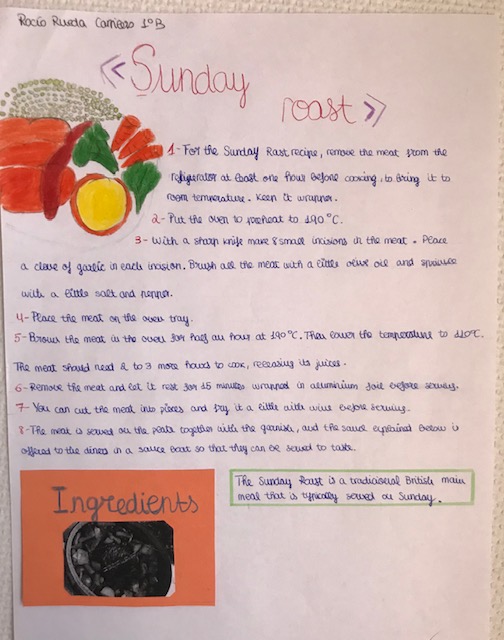 Rocío Rueda Carnero 1ºB
«Sunday
roast»
1- For the Sunday Rast recipe, remove the meat from the
refrigerator at least one hour before cooking, to bring it to
room temperature. Keep it wrapper.
2- Put the oven to preheat to 190ºC.
3- With a sharp knife make 8 small incisions in the meat. Place
a clove of garlic in each incision. Brush all the meat with a little olive oil and sprinkle
with a little salt and pepper.
4- Place the meat on the oven tray.
5- Brown the meat in the oven for half an hour at 190ºC. Then lower the temperature to 110ºC.
The meat should need 2 to 3 more hours to cook, releasing its juices.
6- Remove the meat and let it rest for 15 minutes wrapped in aluminium foil before serving.
7- You can cut the meat into pieces and fry it a little with wine before serving.
8- The meat is served on the plate together with the garnish, and the sauce explained below is
offered to the diners in a sauce boat so that they can be served to taste.
The Sunday Roast is a tradicioral British main
meal that is typically served on Sunday.
Ingredients